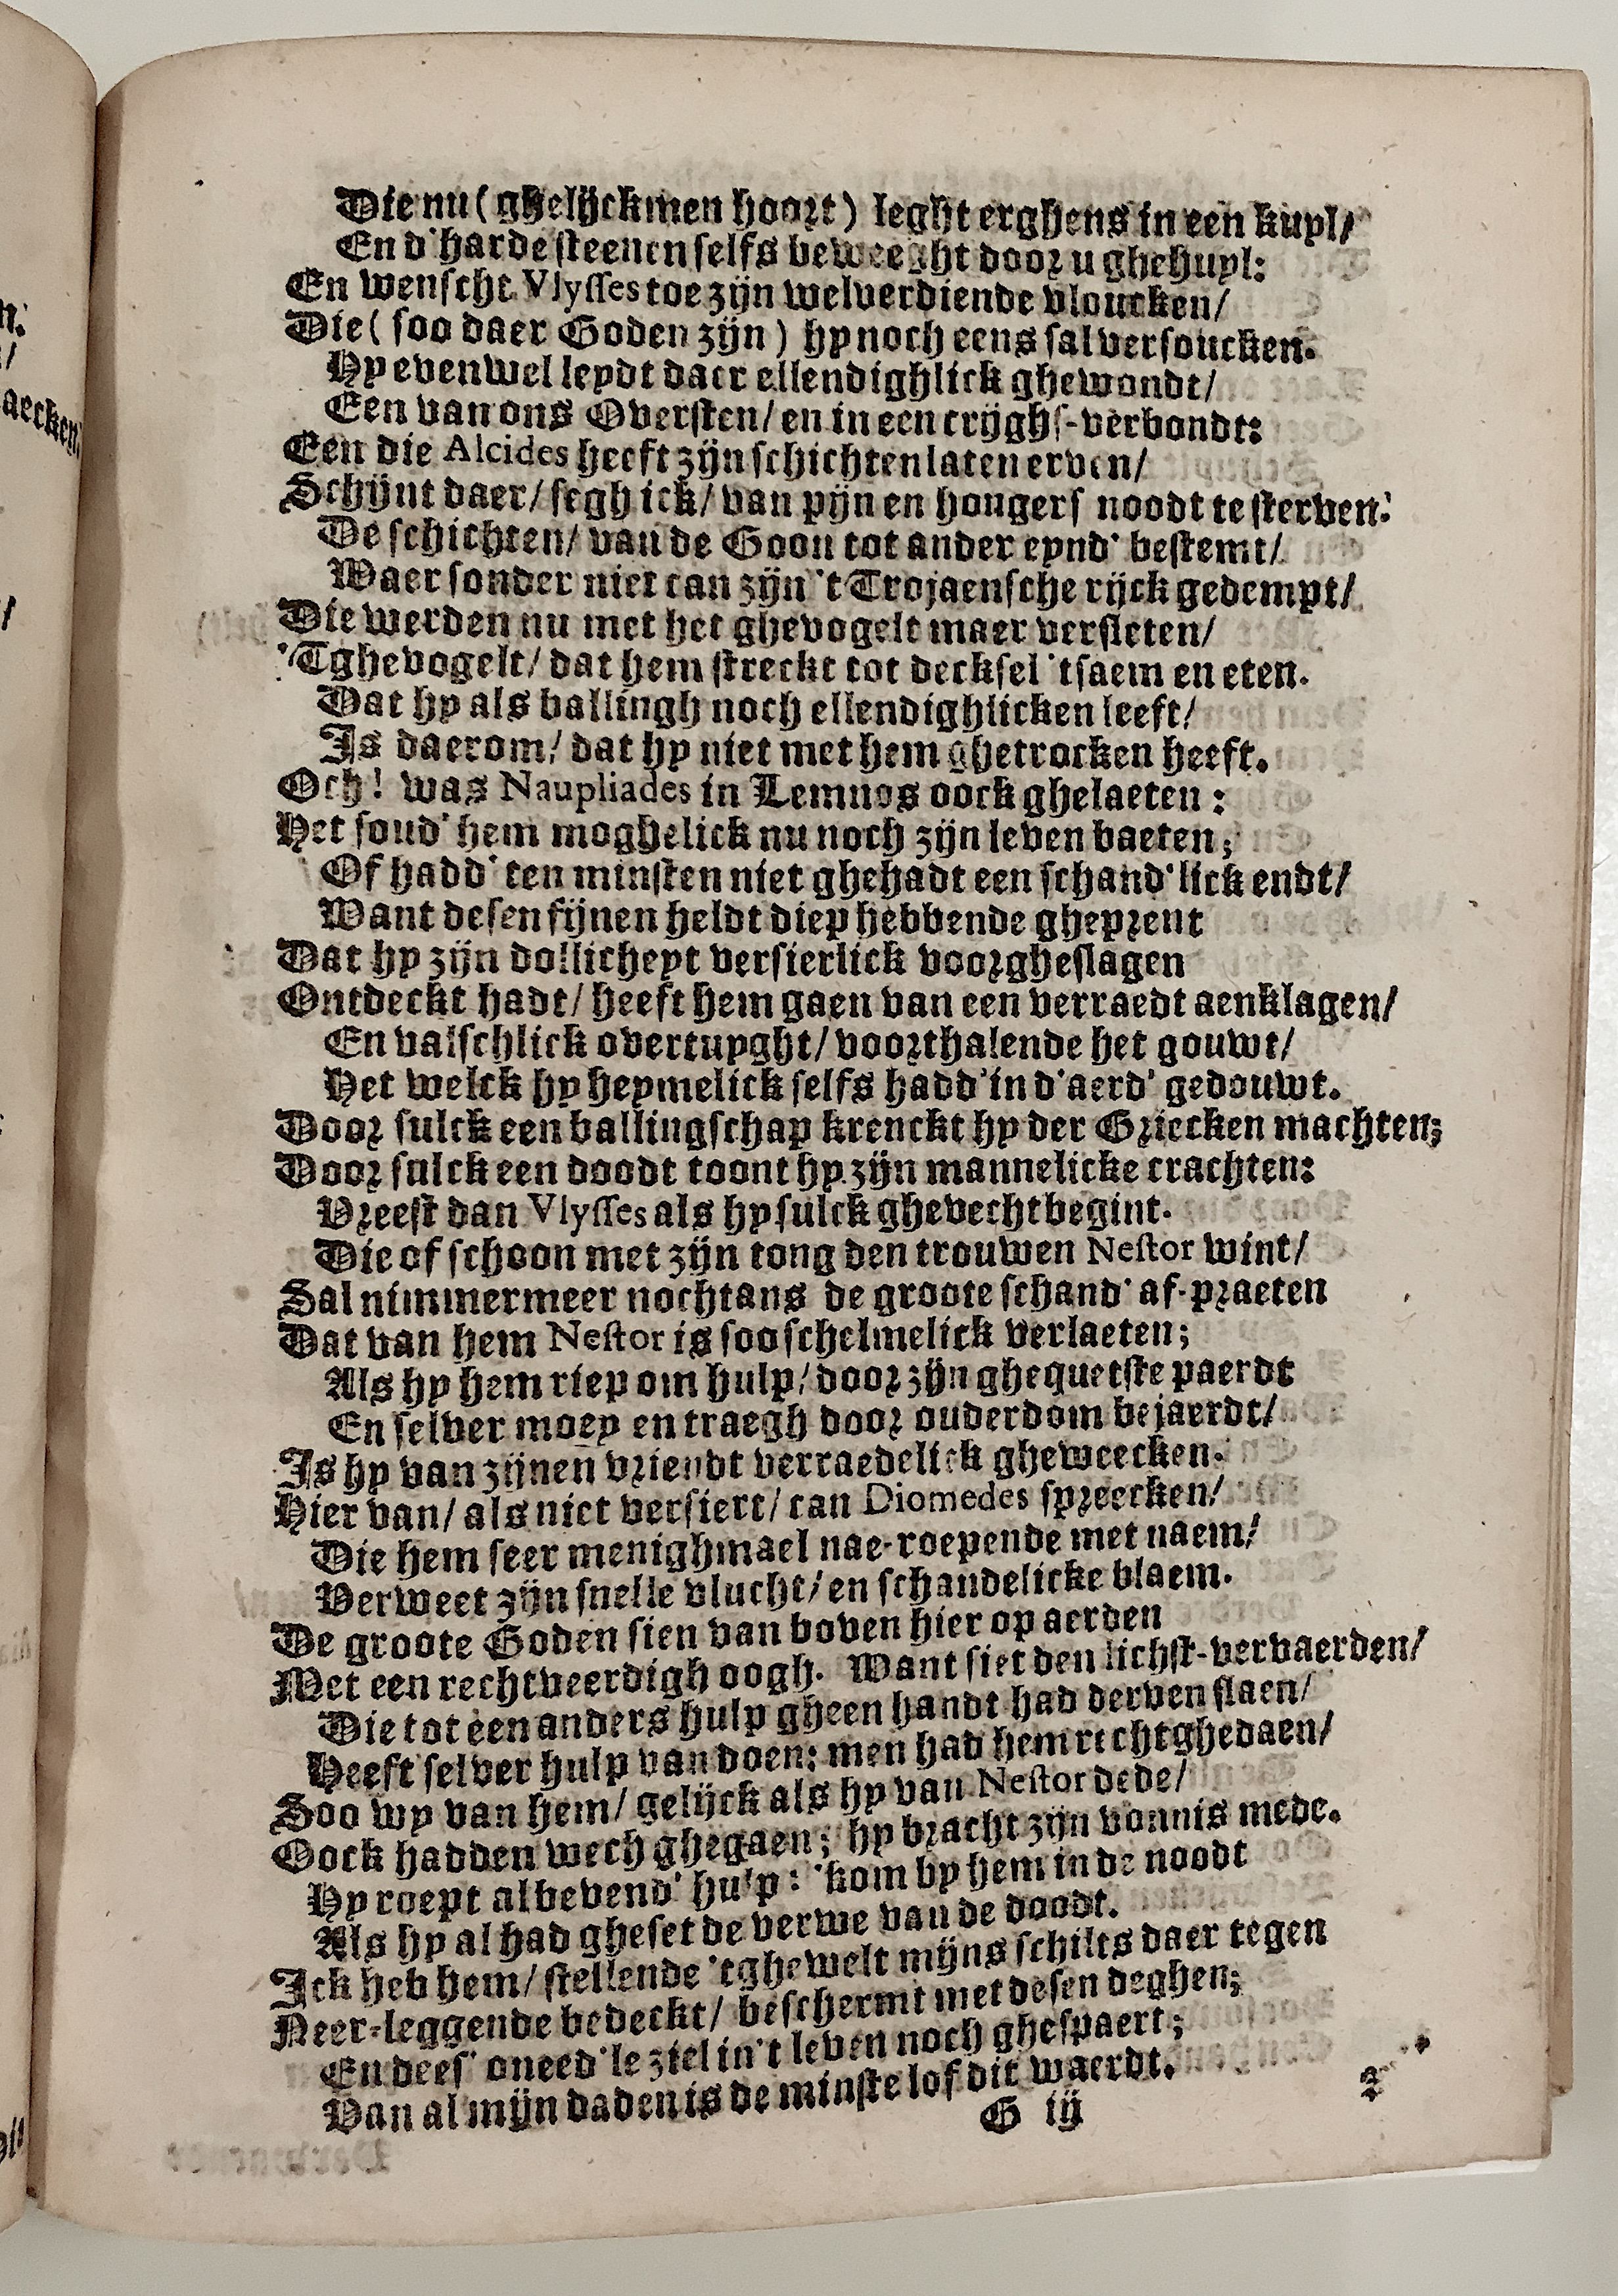 Die nu (ghelijck men hoort) leght erghens in een kuyl/
En d'harde steenen selfs beweeght door u ghehuyl:
En wenscht Vlysses toe zijn welverdiende vloucken/
Die (soo daer Goden zijn) hy noch eens sal versoucken.
Hy evenwel leydt daer ellendighlick ghewondt/
Een van ons Oversten/ en in een crijghs-verbondt:
Een die Alcides heeft zijn schichten laten erven/
Schijnt daer/ segh ick/ van pijn en hongers noodt te sterven:
De schichten/ van de Goon tot ander eynd' bestemt/
Waer sonder niet can zijn 't Trojaensche rijck gedempt/
Die werden nu met het ghevogelt maer versleten/
'Tghevogelt/ dat hem streckt tot decksel 'tsaem en eten.
Dat hy als ballingh noch ellendighlicken leeft/
Is daerom/ dat hy niet met hem ghetrocken heeft.
Och! was Naupliades in Lemnos oock ghelaeten:
Het soud' hem moghelick nu noch zijn leven baeten;
Of hadd' ten minsten niet ghehadt een schand'lick endt/
Want desen fijnen heldt diep hebbende gheprent
Dat hy zijn dollicheyt versierlick voorgheslagen
Ontdeckt hadt/ heeft hem gaen van een verraedt aenklagen/
En valschlick overtuyght/ voorthalende het gouwt/
Het welck hy heymelick selfs hadd' in d'aerd' gedouwt.
Door sulck een ballingschap krenckt hy der Griecken machten;
Door sulck een doodt toont hy zijn mannelicke crachten:
Vreest dan Vlysses als hy sulck ghevecht begint.
Die of schoon met zijn tong den trouwen Nestor wint/
Sal nimmermeer nochtans de groote schand' af-praeten
Dat van hem Nestor is soo schelmelick verlaeten;
Als hy hem riep om hulp/ door zijn ghequetste paerdt
En selver moey en traegh door ouderdom bejaerdt/
Is hy van zijnen vriendt verraedelick gheweecken.
Hier van/ als niet versiert/ can Diomedes spreecken/
Die hem seer menighmael nae-roepende met naem/
Verweet zijn snelle vlucht/ en schandelicke blaem.
De groote Goden sien van boven hier op aerden
Met een rechtveerdigh oogh. Want siet den lichst-vervaerden/
Die tot een anders hulp gheen handt had derven slaen/
Heeft selver hulp van doen: men had hem recht ghedaen/
Soo wy van hem/ gelijck als hy van Nestor dede/
Oock hadden wech ghegaen; hy bracht zijn vonnis mede.
Hy roept albevend' hulp: 'kom by hem in de noodt
Als hy al had gheset de verwe van de doodt.
Ick heb hem/ stellende 'tghewelt mijns schilts daer tegen
Neer-leggende bedeckt/ beschermt met desen deghen;
En dees' oneed'le ziel in't leven noch ghespaert;
Van al mijn daden is de minste lof dit waerdt.
G ij